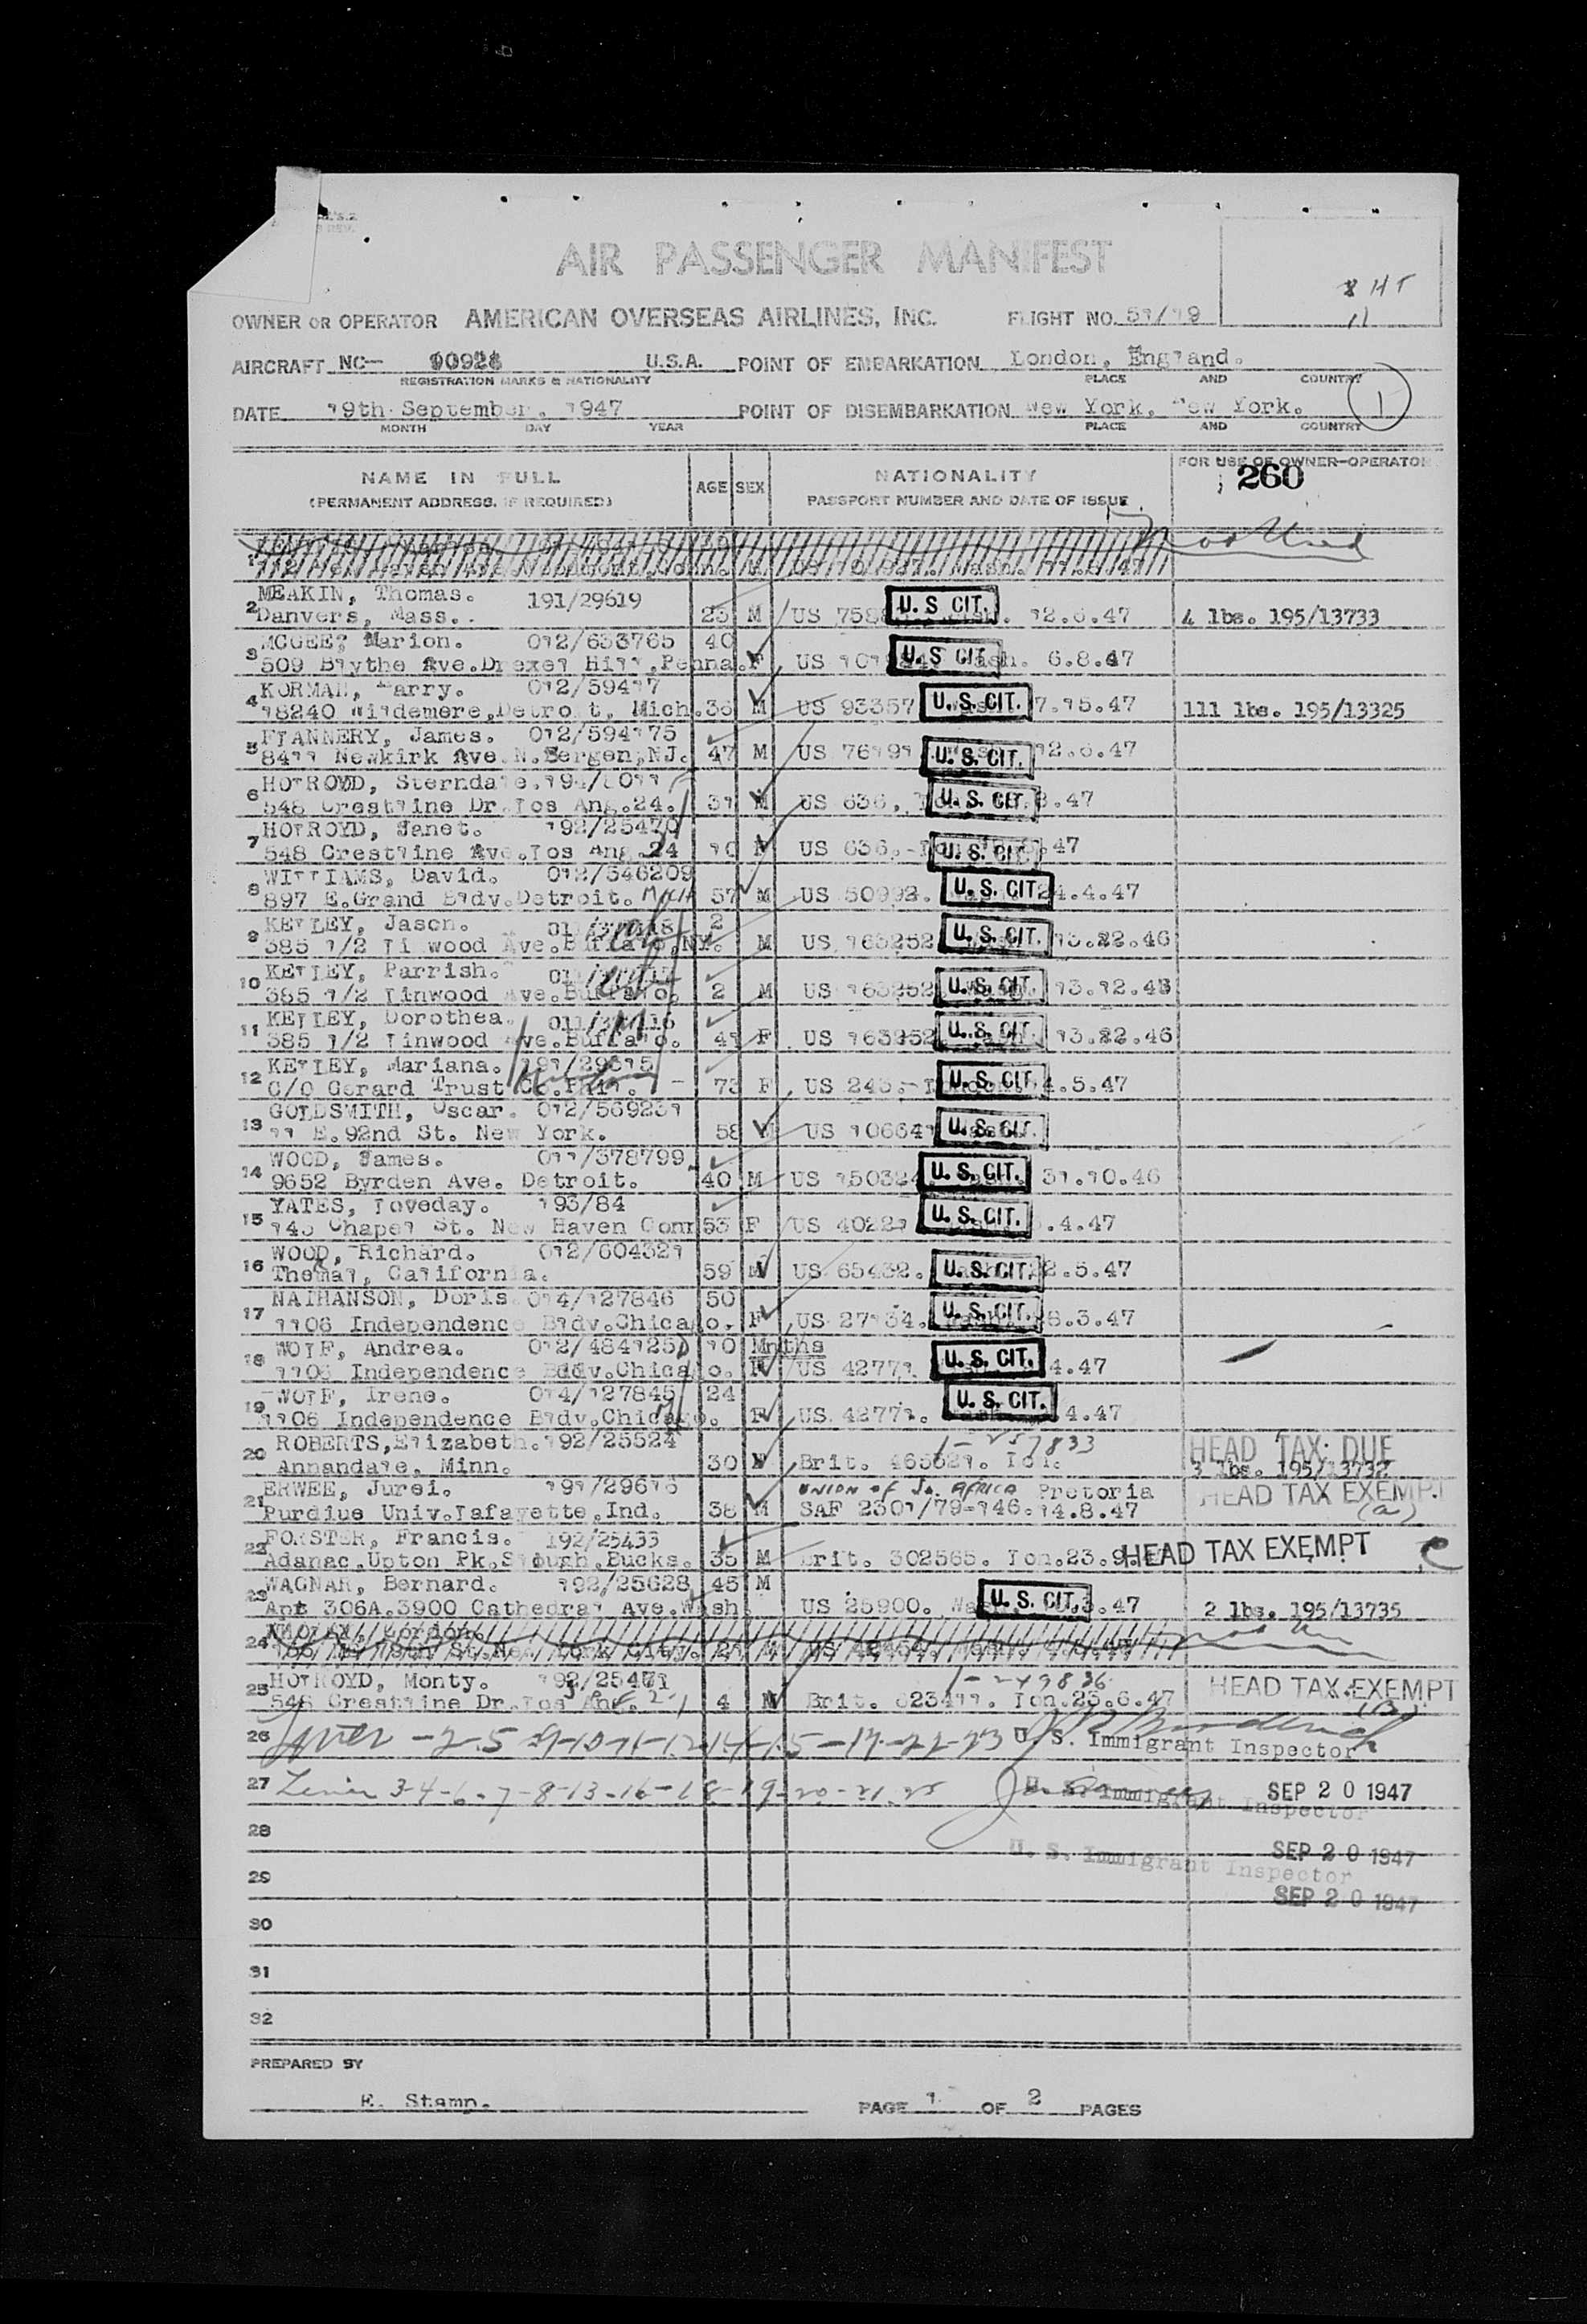 AIR PASSENGER MANIFEST
8 HT
11
OWNER OR OPERATOR AMERICAN OVERSEAS AIRLINES, INC. FLIGHT NO. 51/19
AIRCRAFT NC- 90928 U.S.A. POINT OF EMBARKATION London, England.
REGISTRATION MARKS & NATIONALITY PLACE AND COUNTRY
DATE 19th September. 1947 POINT OF DISEMBARKATION New York. New York. 1
MONTH DAY YEAR PLACE AND COUNTRY
NAME IN FULL AGE SEX NATIONALITY FOR USE OF OWNER-OPERATOR
(PERMANENT ADDRESS, IF REQUIRED) PASSPORT NUMBER AND DATE OF ISSUE 260
1
2 MEAKIN, Thomas. 191/29619 U.S CIT.
Danvers, Mass. 25 M US 12.6.47 4 lbs. 195/13733
3 MCGEE, Marion. 012/633765 40 U.S CIT.
509 Blythe Ave.Drexel Hill.Penna. F US Wash. 6.8.47
4 KORMAN, Harry. 012/59417
18240 Wildemere,Detroit, Mich. 36 M US 93357 U.S.CIT. 7.15.47 111 lbs. 195/13325
5 FLANNERY, James. 012/594175
8411 Newkirk Ave N.Bergen,NJ. 47 M US 76191 U.S.CIT. 12.6.47
6 HOLROYD, Sterndale.
548 Crestline Dr.Los Ang.24. 31 M US 636, U.S.CIT. .47
7 HOLROYD, Janet. 192/25470
548 Crestline Ave.Los Ang.24 10 F US 636. U.S.CIT. .47
8 WILLIAMS, David. 012/546209
897 E.Grand Bldv.Detroit. MICH 57 M US 50992. U.S.CIT. 24.4.47
9 KELLEY, Jason. 2
385 1/2 Linwood Ave.Buffalo,NY. M US 163252 U.S.CIT. 13.22.46
10 KELLEY, Parrish.
385 1/2 Linwood Ave.Buffalo. 2 M US 163252 U.S.CIT. 13.12.46
11 KELLEY, Dorothea.
385 1/2 Linwood Ave.Buffalo. 41 F US 163252 U.S.CIT. 13.22.46
12 KELLEY, Mariana. 191/29615
C/O Gerard Trust Co.Phil. - 73 F US 245.- U.S.CIT. 4.5.47
13 GOLDSMITH, Oscar. 012/569231
11 E.92nd St. New York. 58 M US 106641 U.S.CIT.
14 WOOD, James. 011/378799
9652 Byrden Ave. Detroit. 40 M US 150324 U.S.CIT. 31.10.46
15 YATES, Loveday. 193/84
145 Chapel St. New Haven Conn 53 F US 40221 U.S.CIT. .4.47
16 WOOD, Richard. 012/604321
Thomal, California. 59 M US 65432. U.S.CIT. 2.5.47
17 NATHANSON, Doris 014/127846 50
1106 Independence Bldv.Chicago. F US 27134. U.S.CIT. 6.3.47
18 WOLF, Andrea. 012/484125 10 Mnths
1106 Independence Bldv.Chicago. F US 42771 U.S.CIT. 4.47
19 WOLF, Irene. 014/127845 24
1106 Independence Bldv.Chicago. F US. 42771. U.S.CIT. 4.47
20 ROBERTS,Elizabeth. 192/25524 1-257833 HEAD TAX DUE
Annandale, Minn. 30 F Brit. 465621. Lon. 3 lbs. 195/13732
21 ERWEE, Jurei. 191/29616 UNION OF So. AFRICA Pretoria HEAD TAX EXEMPT
Purdius Univ.Lafayette,Ind. 38 M SAF 2301/79-146. 14.8.47 (a)
22 FORSTER, Francis. 192/25433
Adanac,Upton Pk.Slough,Bucks. 35 M Brit. 302565. Lon.23.9. HEAD TAX EXEMPT e
23 WAGNAR, Bernard. 192/25628 45 M
Apt 306A.3900 Cathedral Ave.Wash US 25900. U.S.CIT. .47 2 lbs. 195/13735
24 Gordon.
25 HOLROYD, Monty. 192/25471 1-249836 HEAD TAX EXEMPT
548 Crestline Dr.Los Ang. 4 M Brit. 623411. Lon.23.6.47
26 U. S. Immigrant Inspector
27 3-4-6-7-8-13-16-18-19-20-21-25 U. S. Immigrant Inspector SEP 20 1947
28 U. S. Immigrant Inspector SEP 20 1947
29 SEP 20 1947
30
31
32
PREPARED BY
E. Stamp. PAGE 1 OF 2 PAGES